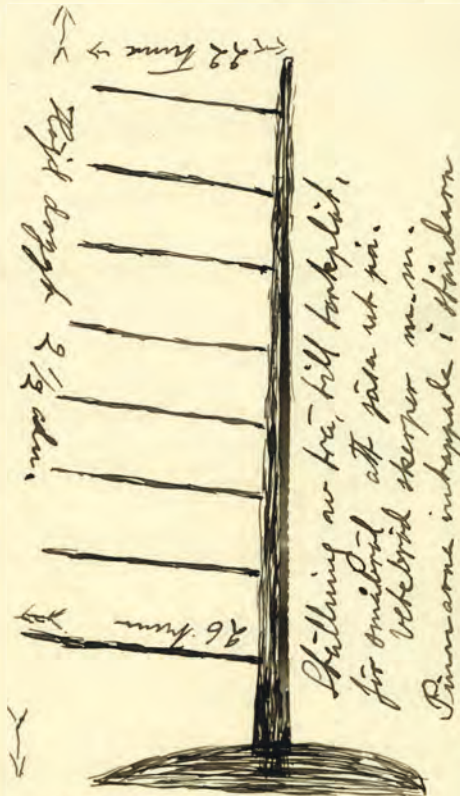 22 tum
Höjd drygt 2 1/2 aln.
26 tum
Ställning av trä, till bakplåt,
för småbröd att sätta ut på.
vetebröd skorper m.m.
Pinnarna intappade i ståndarn